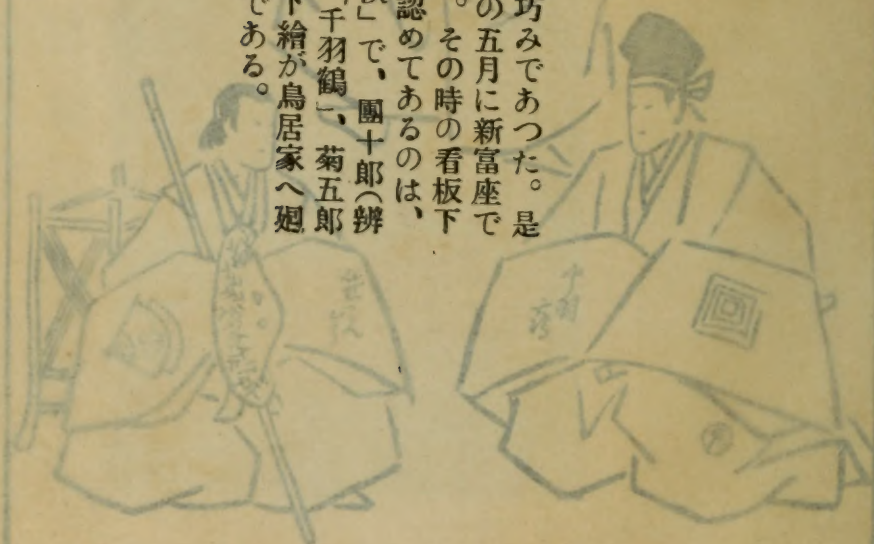 巧みであつた。是
の五月に新富座で
。その時の看板下
認めてあるのは、
」で、團十郎(辨
千羽鶴」、菊五郎
下繪が鳥居家へ廻
である。
千羽鶴